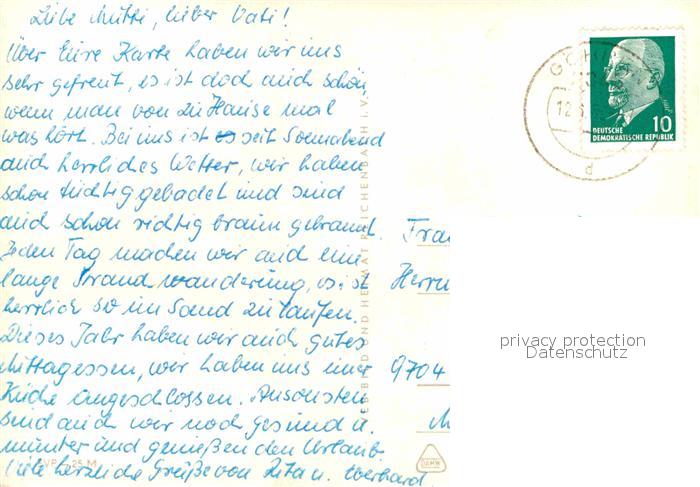 Liebe Mutti, lieber Vati!
Über Eure Karte haben wir uns
sehr gefreut, es ist doch auch schön,
wenn man von zu Hause mal
was hört. Bei uns ist es seit Sonnabend
auch herrliches Wetter, wir haben
schon tüchtig gebadet und sind
auch schon richtig braun gebrannt.
Jeden Tag machen wir auch eine
lange Strandwanderung, es ist
herrlich so im Sand zu laufen.
Dieses Jahr haben wir auch gutes
Mittagessen, wir haben uns einer
Küche angeschlossen. Ansonsten
sind auch wir noch gesund u.
munter und genießen den Urlaub
Viele herzliche Grüße von Rita u. Eberhard.
BILD UND HEIMAT REICHENBACH i. V.
25 M
DEWAG
GÖHR
12.
d
10
DEUTSCHE
DEMOKRATISCHE REPUBLIK
Frau
Herrn
9704
privacy protection
Datenschutz